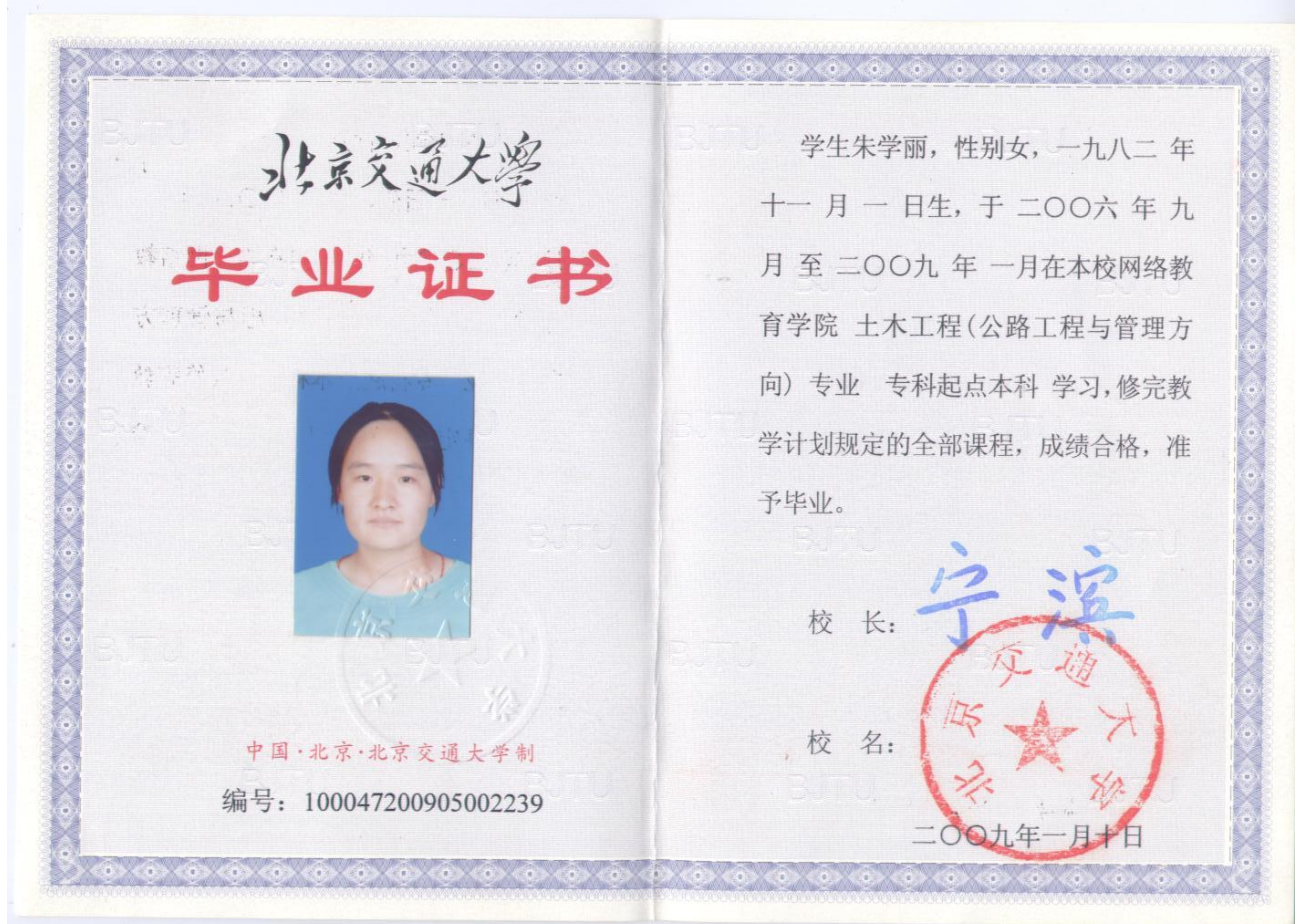 北京交通大学
毕业证书
中国·北京·北京交通大学制
编号：100047200905002239
学生朱学丽，性别女，一九八二 年
十一 月 一 日生，于 二〇〇六 年 九
月 至 二〇〇九 年 一月在本校网络教
育学院 土木工程(公路工程与管理方
向) 专业 专科起点本科 学习，修完教
学计划规定的全部课程，成绩合格，准
予毕业。
校 长：宁滨
校 名：
北京交通大学
二〇〇九年一月十日
BJTU